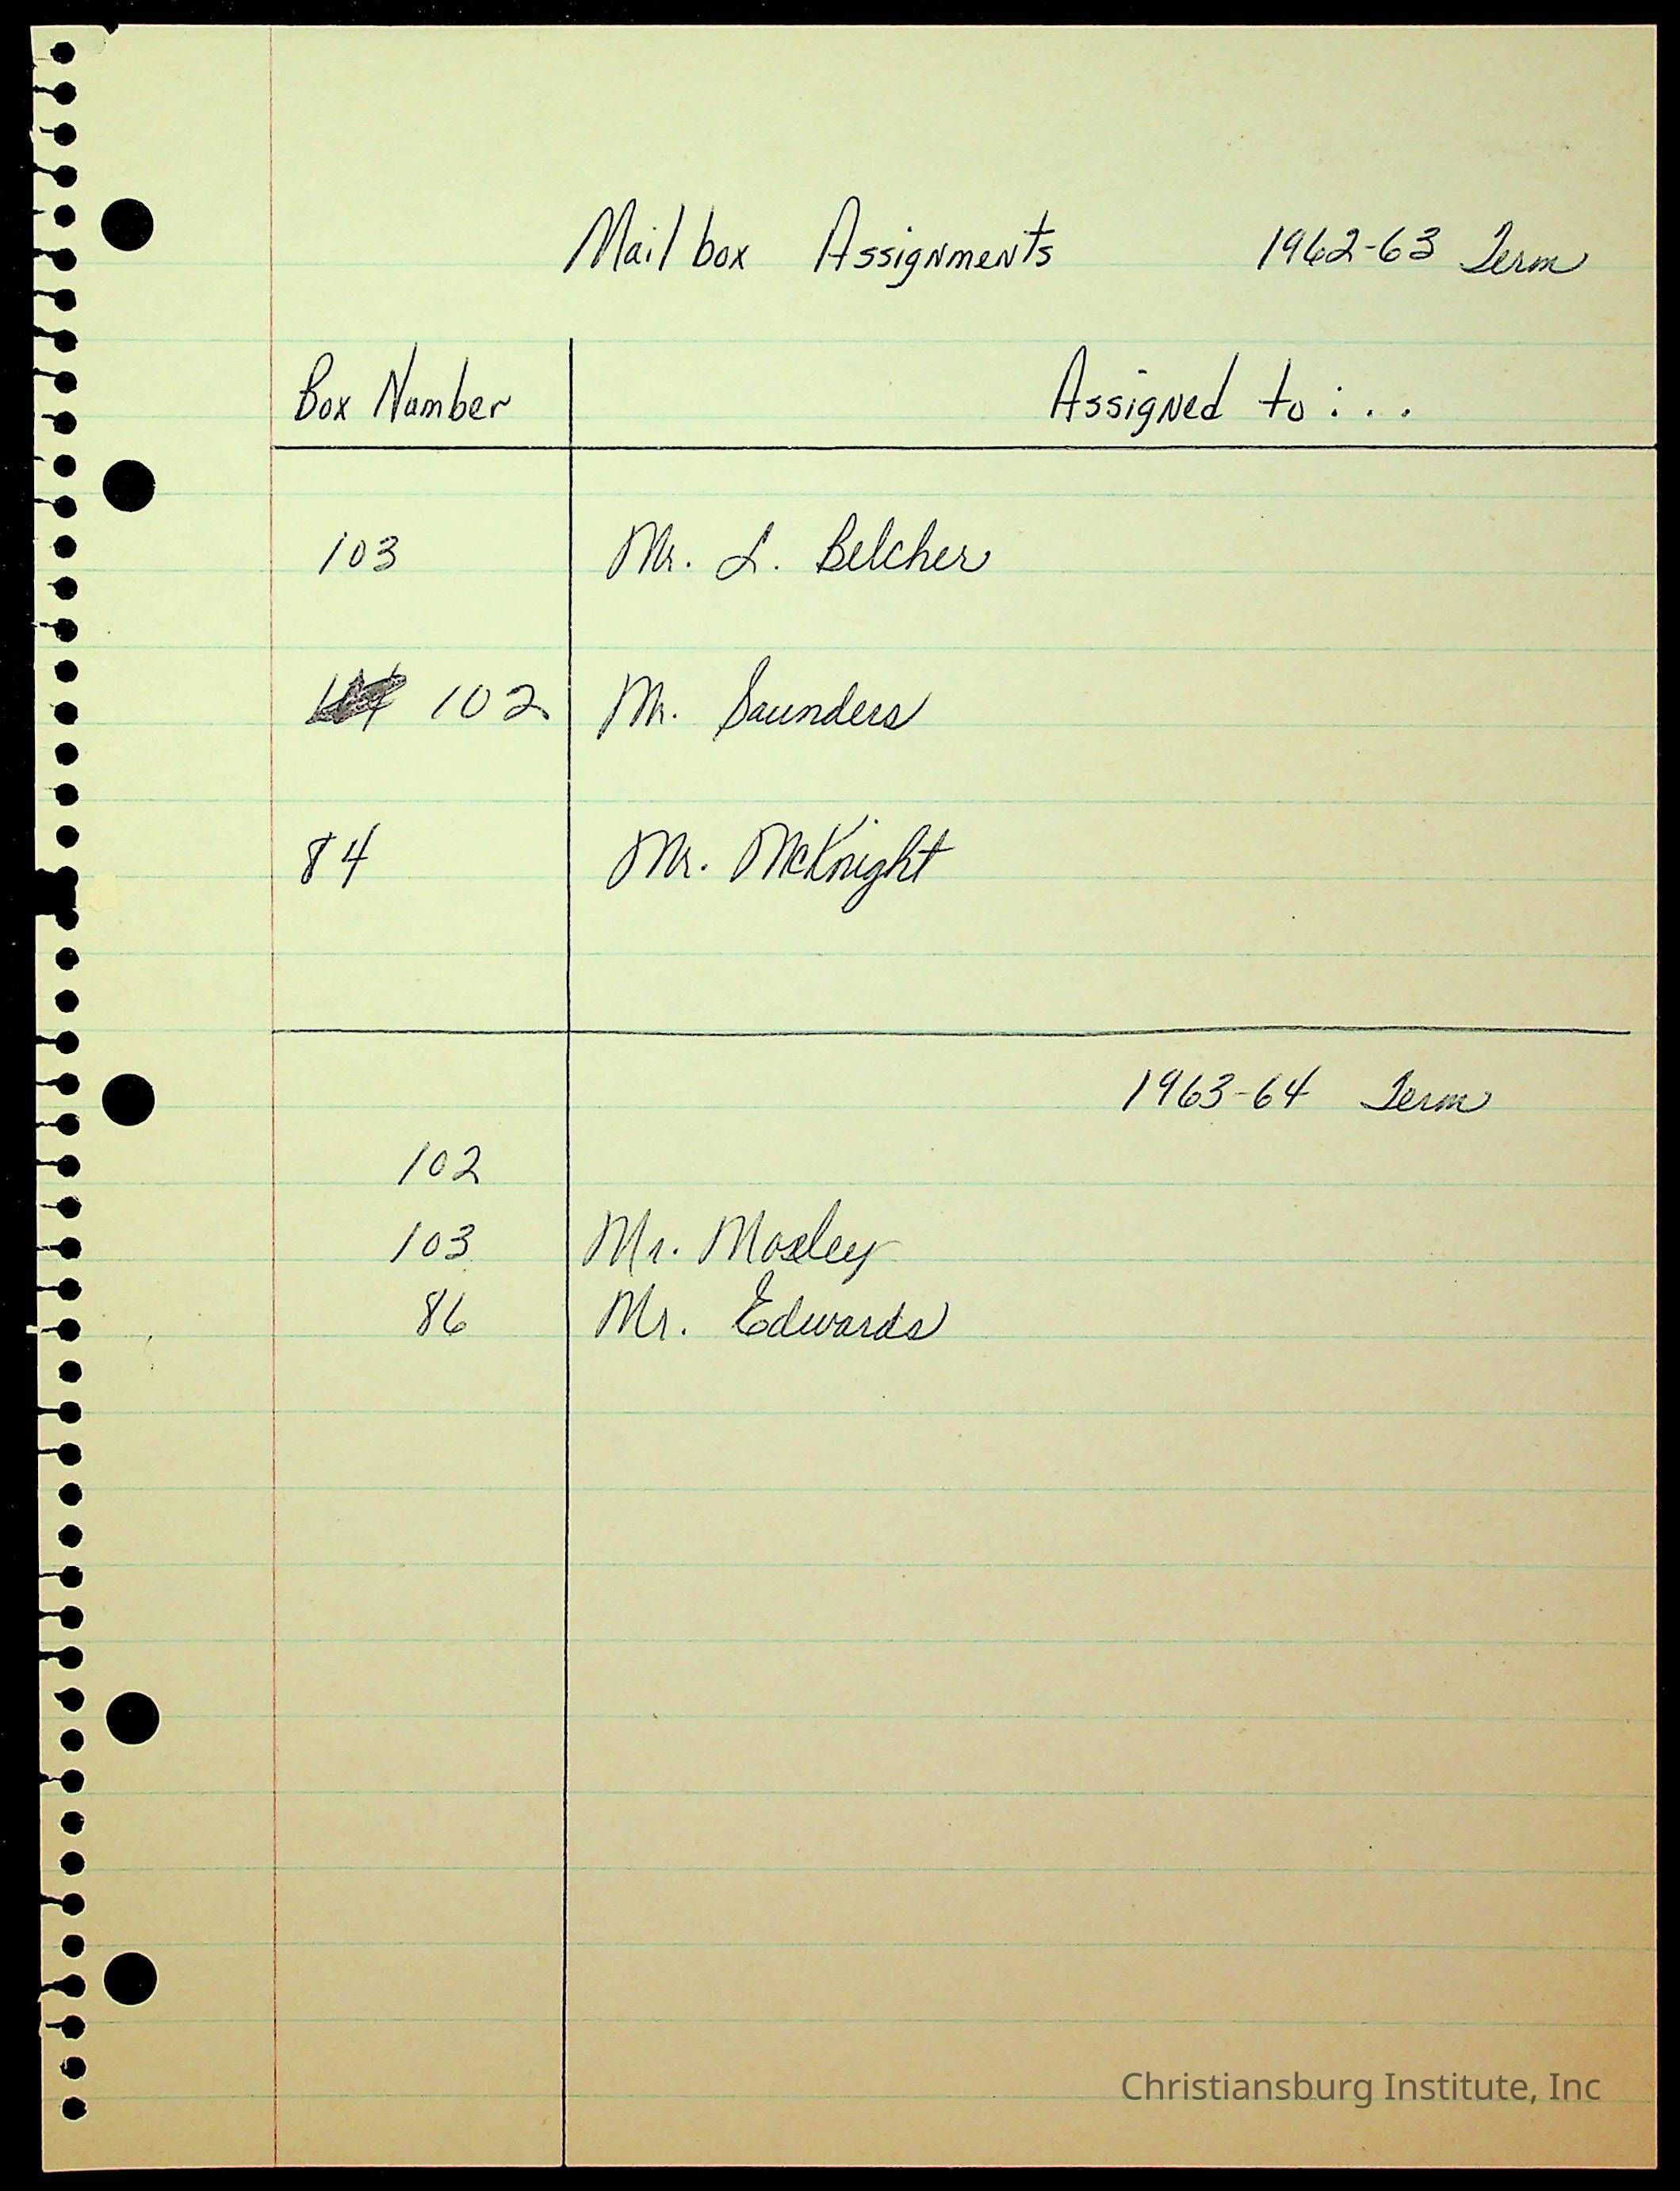 Mail box Assignments 1962-63 Term
Box Number Assigned to : . .
103 Mr. L. Belcher
102 Mr. Saunders
84 Mr. McKnight
1963-64 Term
102
103 Mr. Mosley
86 Mr. Edwards
Christiansburg Institute, Inc